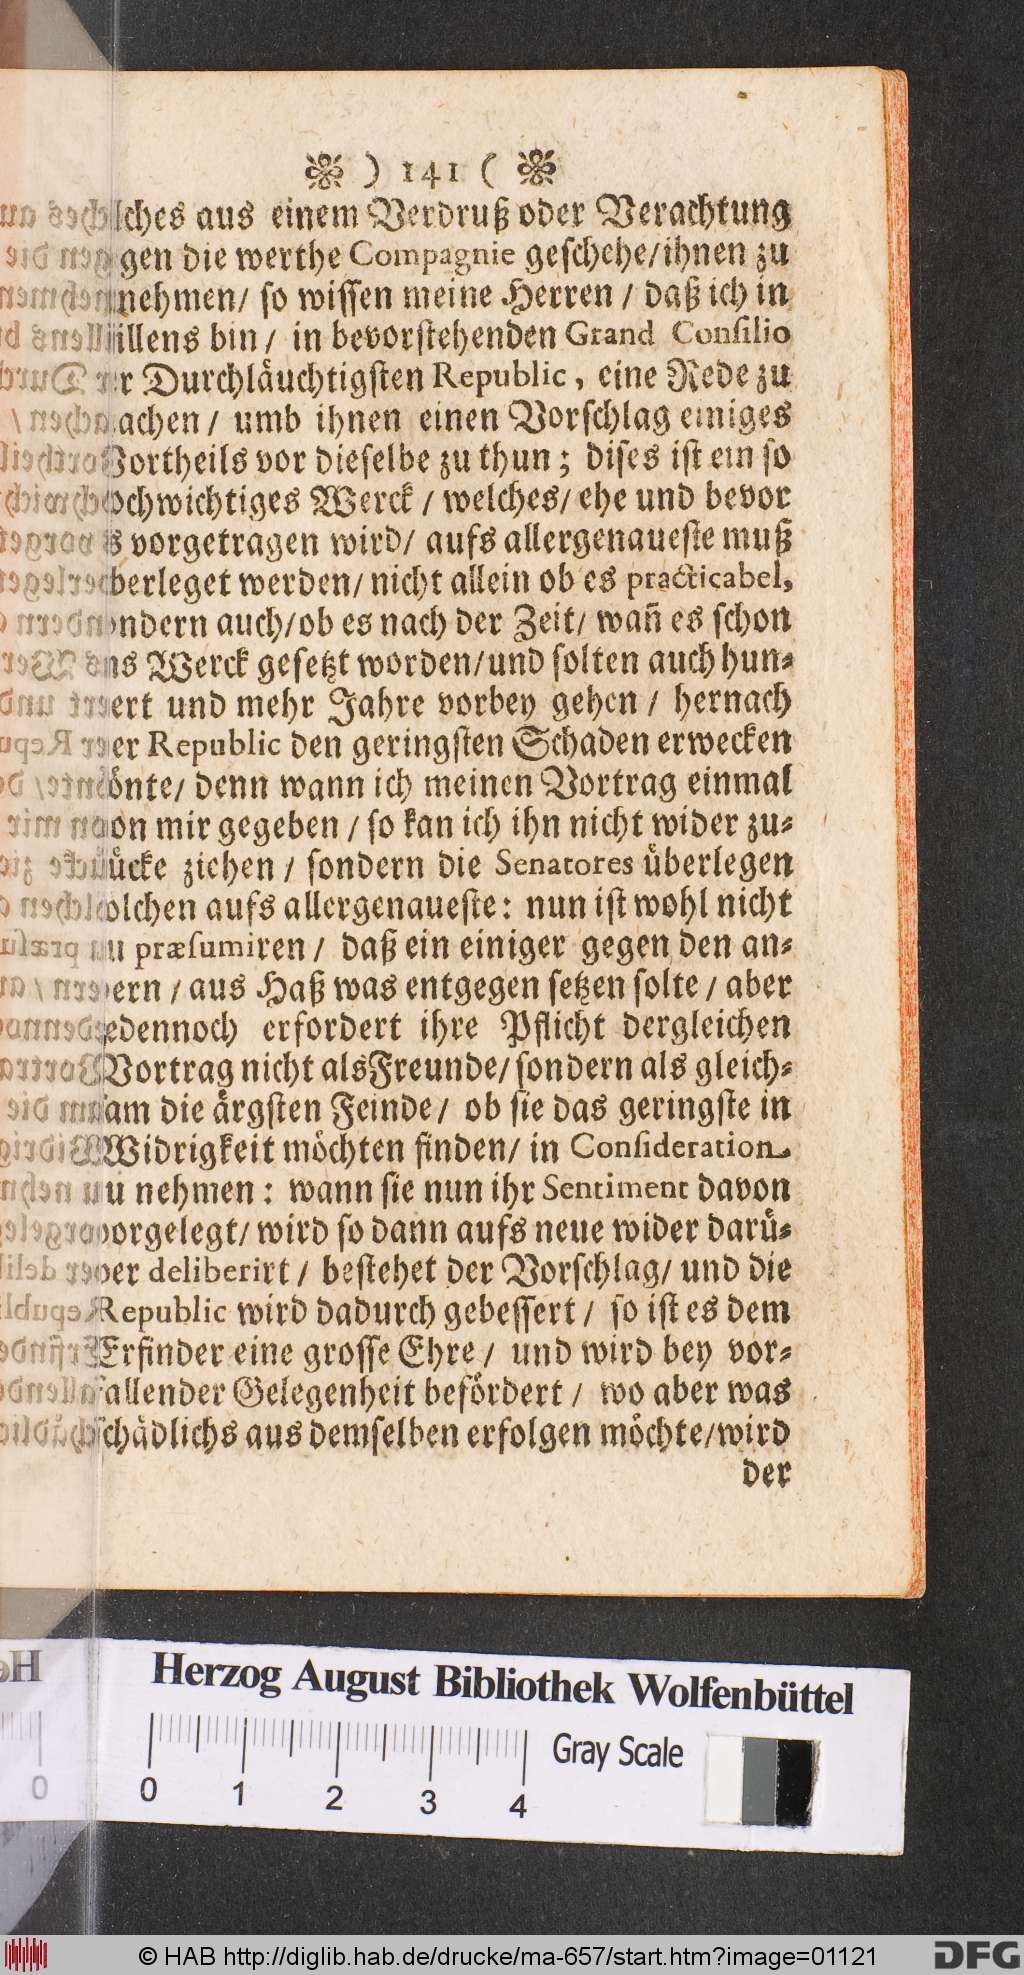 ) 141 (
lches aus einem Verdruß oder Verachtung
gen die werthe Compagnie geschehe/ihnen zu
nehmen/ so wissen meine Herren / daß ich in
illens bin / in bevorstehenden Grand Consilio
r Durchläuchtigsten Republic, eine Rede zu
achen / umb ihnen einen Vorschlag einiges
ortheils vor dieselbe zu thun; dises ist ein so
ochwichtiges Werck / welches/ ehe und bevor
s vorgetragen wird/ aufs allergenaueste muß
berleget werden/ nicht allein ob es practicabel,
ndern auch/ob es nach der Zeit/ wañ es schon
ns Werck gesetzt worden/und solten auch hun-
ert und mehr Jahre vorbey gehen / hernach
er Republic den geringsten Schaden erwecken
önte/ denn wann ich meinen Vortrag einmal
on mir gegeben / so kan ich ihn nicht wider zu-
ücke ziehen / sondern die Senatores überlegen
olchen aufs allergenaueste: nun ist wohl nicht
u præsumiren / daß ein einiger gegen den an-
ern / aus Haß was entgegen setzen solte / aber
edennoch erfordert ihre Pflicht dergleichen
Vortrag nicht als Freunde/ sondern als gleich-
am die ärgsten Feinde / ob sie das geringste in
Widrigkeit möchten finden/ in Consideration
u nehmen: wann sie nun ihr Sentiment davon
vorgelegt/ wird so dann aufs neue wider darü-
ber deliberirt / bestehet der Vorschlag/ und die
Republic wird dadurch gebessert / so ist es dem
Erfinder eine grosse Ehre / und wird bey vor-
fallender Gelegenheit befördert / wo aber was
schädlichs aus demselben erfolgen möchte/wird
der
Herzog August Bibliothek Wolfenbüttel
Gray Scale
0 0 1 2 3 4
© HAB http://diglib.hab.de/drucke/ma-657/start.htm?image=01121
DFG